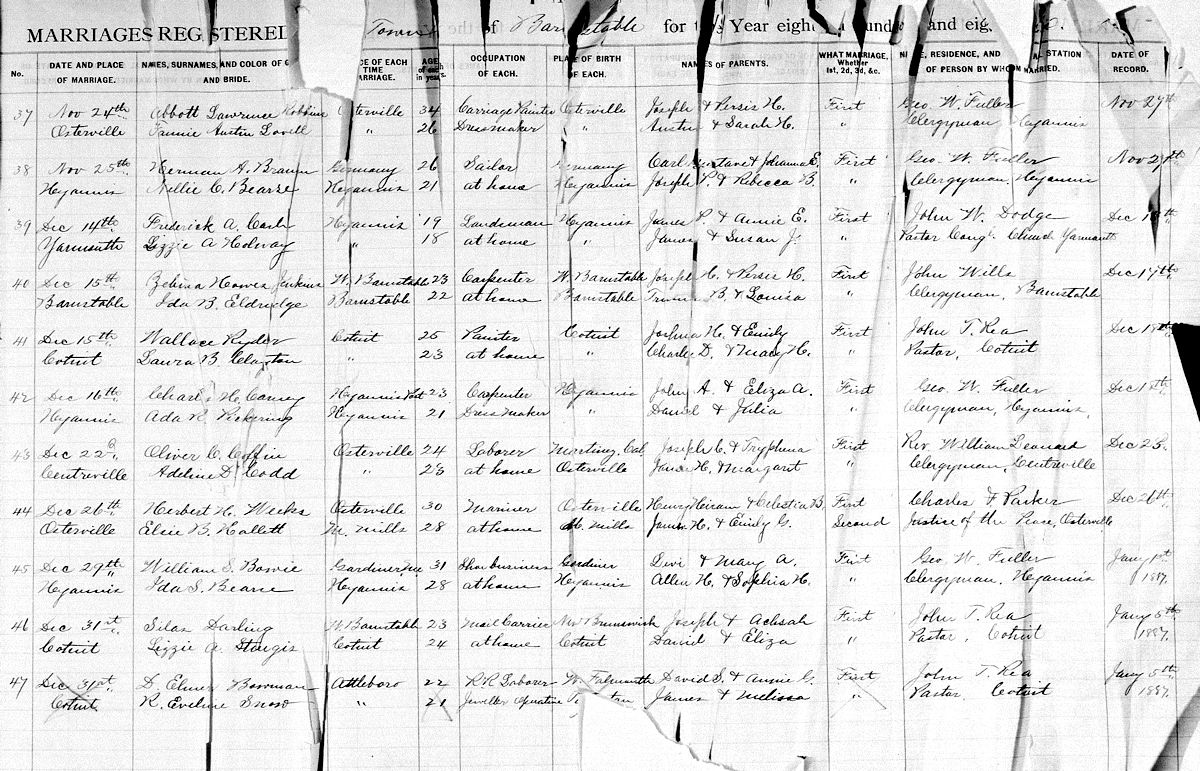 MARRIAGES REGISTERED Town of Barnstable for the Year eighteen hundred and eig
No. DATE AND PLACE OF MARRIAGE. NAMES, SURNAMES, AND COLOR OF AND BRIDE. OF EACH TIME MARRIAGE. AGE of each in years. OCCUPATION OF EACH. PLACE OF BIRTH OF EACH. NAMES OF PARENTS. WHAT MARRIAGE, Whether 1st, 2d, 3d, &c. RESIDENCE, AND STATION OF PERSON BY WHOM MARRIED. DATE OF RECORD.
37 Nov 24th Abbott Lawrence Robbins Osterville 34 Carriage Painter Osterville Joseph & Persis H. First Geo. W. Fuller Nov 27th
Osterville Fannie Austin Lovell " 26 Dressmaker " Austin & Sarah H. " Clergyman Hyannis
38 Nov 25th Herman A. Braun Germany 26 Tailor Germany Carl Gustave & Johanna E. First Geo. W. Fuller Nov 27th
Hyannis Nellie C. Bearse Hyannis 21 at home Hyannis Joseph P. & Rebecca B " Clergyman. Hyannis
39 Dec 14th Frederick A. Cash Hyannis 19 Hyannis James P. & Annie E. First John W. Dodge Dec
Yarmouth Lizzie A Holway " 18 at home " James & Susan J. " Pastor Cong'l Church Yarmouth
40 Dec 15th Zebina Howes Jenkins W. Barnstable 23 Carpenter W Barnstable Joseph H. & Persis H. First John Wills Dec 17th
Barnstable Ida B. Eldredge Barnstable 22 at home Barnstable B & Louisa " Clergyman, Barnstable
41 Dec 15th Wallace Ryder Cotuit 25 Painter Cotuit Joshua H. & Emily First John T. Rea Dec 18th
Cotuit Laura B. Clayton " 23 at home " Charles D. & Mary H. " Pastor, Cotuit
42 Dec 16th Charles H. Canney Hyannis Port 23 Carpenter Hyannis John A. & Eliza A. First Geo. W. Fuller Dec 18th
Hyannis Ada R. Pickering Hyannis 21 Dressmaker " Daniel & Julia " Clergyman, Hyannis,
43 Dec 22d Oliver C. Coffin Osterville 24 Laborer Cal Joseph C. & Tryphena First Rev. William Leonard Dec 23.
Centreville Adeline D. Codd " 23 at home Osterville James H. & Margaret " Clergyman, Centreville
44 Dec 26th Herbert H. Weeks Osterville 30 Mariner Osterville Henry Hiram & Celestia B First Charles F Parker Dec 26th
Osterville Elsie B. Hallett M. Mills 28 at home M. Mills James H. & Emily G. Second Justice of the Peace, Osterville
45 Dec 29th William S. Bowie Gardiner Me 31 Shoe business Gardiner Levi & Mary A. First Geo W. Fuller Jany 1st
Hyannis Ida S. Bearse Hyannis 28 at home Hyannis Allen H. & Sophia H. " Clergyman, Hyannis 1887.
46 Dec 31st Silas Darling W Barnstable 23 Mail Carrier New Brunswick Joseph & Achsah First John T. Rea Jany 5th
Cotuit Lizzie A. Sturgis Cotuit 24 at home Cotuit Daniel & Eliza " Pastor, Cotuit 1887.
47 Dec 31st. D. Elmer Bowman Attleboro 22 R.R Laborer W. Falmouth David S. & Annie G. First John T. Rea Jany 5th
Cotuit R. Eveline Snow " 21 Jeweller Operative James & Melissa " Pastor Cotuit 1887.